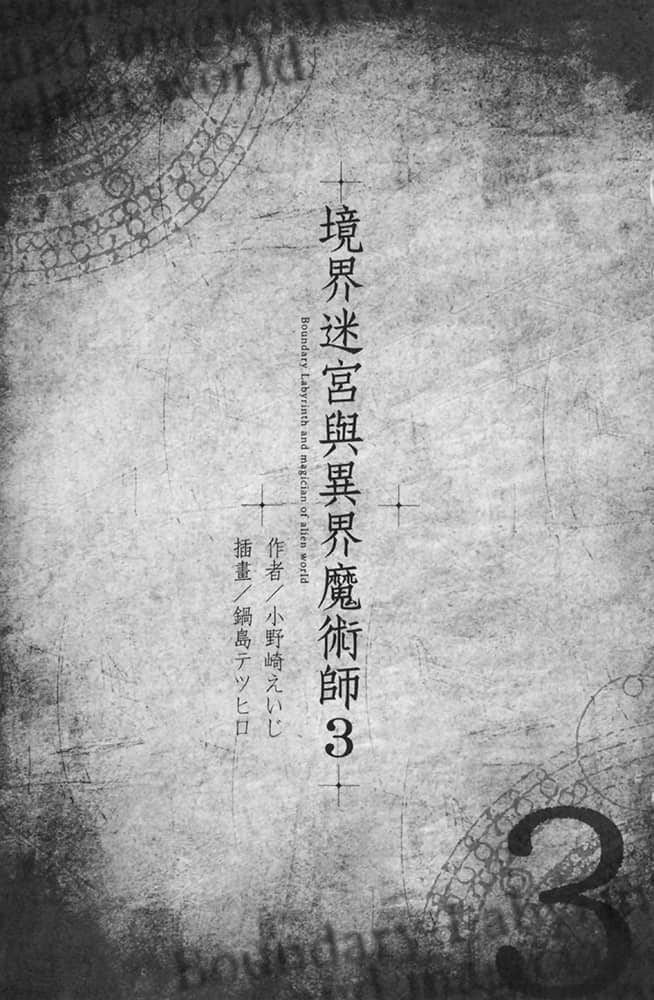 und magician of
alien world
境界迷宮與異界魔術師3
Boundary Labyrinth and magician of alien world
作者/小野崎えいじ
插畫/鍋島テツヒロ
3
Boundary Labyrin